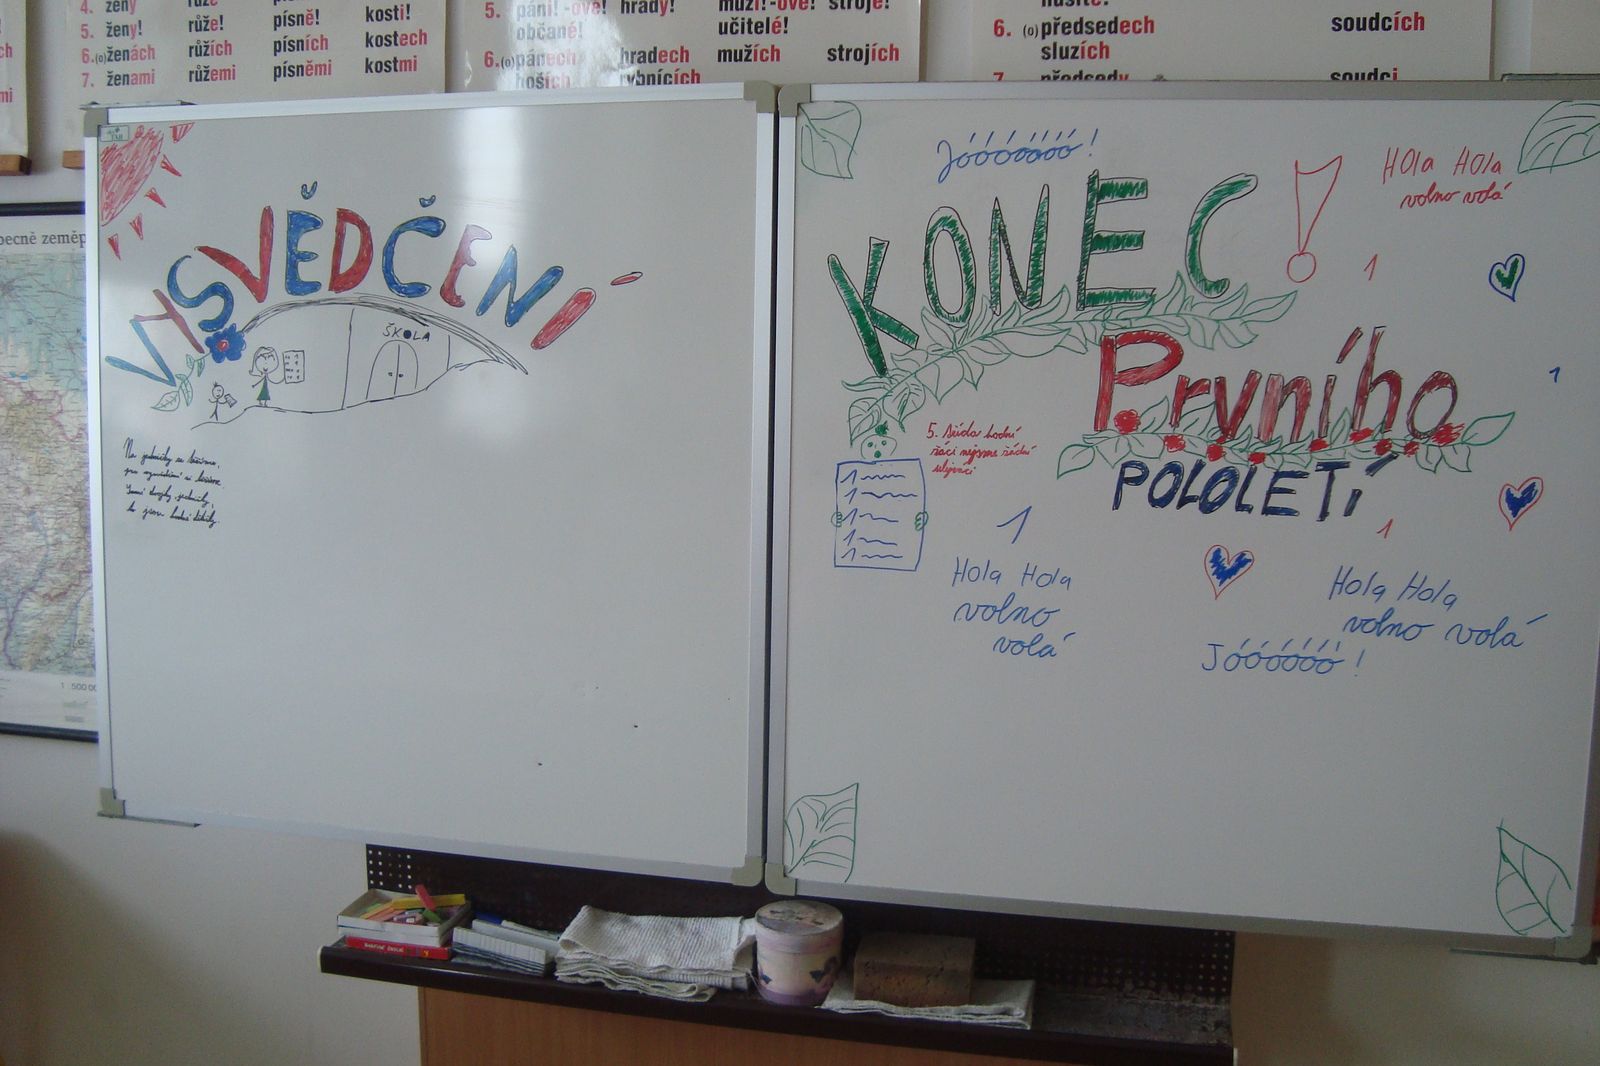 4. ženy růže písně kosti!
5. ženy! růže! písně! kostech
6.(o)ženách růžích písních kostmi
7. ženami růžemi písněmi
5. páni! -ové! hrady! muži! -ové! stroje!
občané! učitelé!
6.(o)pánech hradech mužích strojích
hoších rybnících
6. (o)předsedech soudcích
sluzích
7. předsedy soudci
mi
becně zeměp
1 : 500 00
VYSVĚDČENÍ
ŠKOLA
Na jedničky se těšíme,
Jóóóóóóó!
KONEC!
HOla HOla
volno volá
1
Prvního
POLOLETÍ
1
5. třída hodní
žáci nejsme žádní
ulejváci
1
1
1
1
1
1
1
Hola Hola
volno
volá
Hola Hola
volno volá
Jóóóóóó!